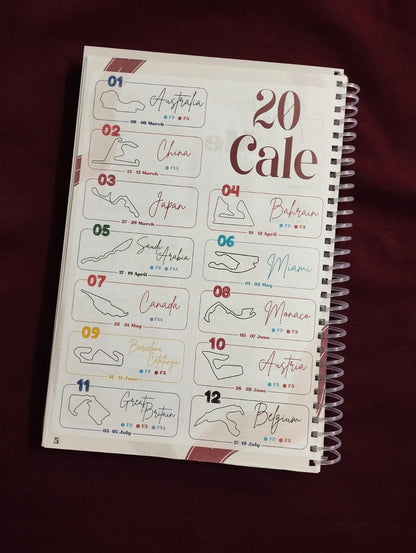 20
Cale
01
Australia
F2 F3
06 - 08 March
02
China
F1A
13 - 15 March
03
Japan
27 - 29 March
04
Bahrain
F2 F3
10 - 12 April
05
Saudi
Arabia
F2 F1A
17 - 19 April
06
Miami
01 - 03 May
07
Canada
F1A
22 - 24 May
08
Monaco
F2 F3
05 - 07 June
09
Barcelona
Catalunya
F2 F3
12 - 14 June
10
Austria
F2 F3
26 - 28 June
11
Great
Britain
F2 F3 F1A
03 - 05 July
12
Belgium
F2 F3
17 - 19 July
5